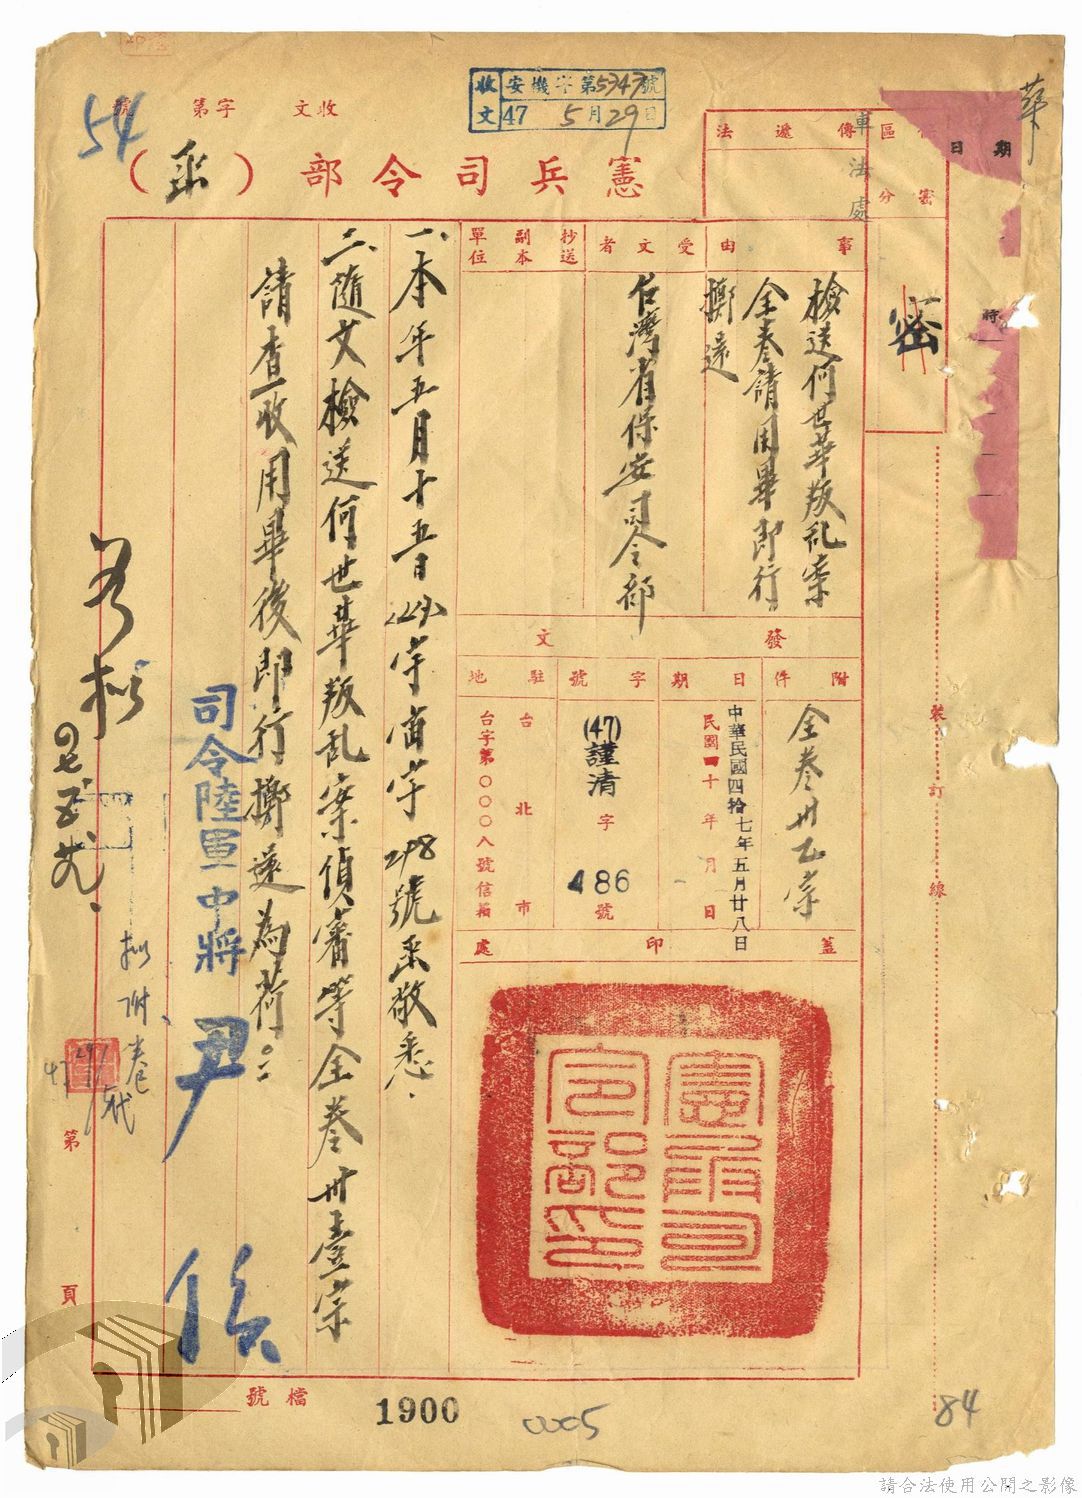 收文
安機字第5747號
47 5月29日
54
收文 字第 號
憲兵司令部（）
軍法處
傳遞法
區分
密
日期
時
華
事由
檢送何世華叛乱案
全卷請用畢即行
擲還
受文者
台灣省保安司令部
抄送副本單位
發文
附件
全卷卅乙宗
日期
中華民國四拾七年五月廿八日
民國四十年月日
字號
(47)謹清字486號
駐地
台北市
台字第〇〇〇八號信箱
蓋印處
憲兵司令部印
一、本年五月十五日字第298號敬悉.
二、隨文檢送何世華叛乱案偵審等全卷卅壹宗
請查收用畢後即行擲還為荷
司令陸軍中將尹俊
擬附卷
47
29/5
裝訂線
第 頁
檔號
1900
0005
84
請合法使用公開之影像